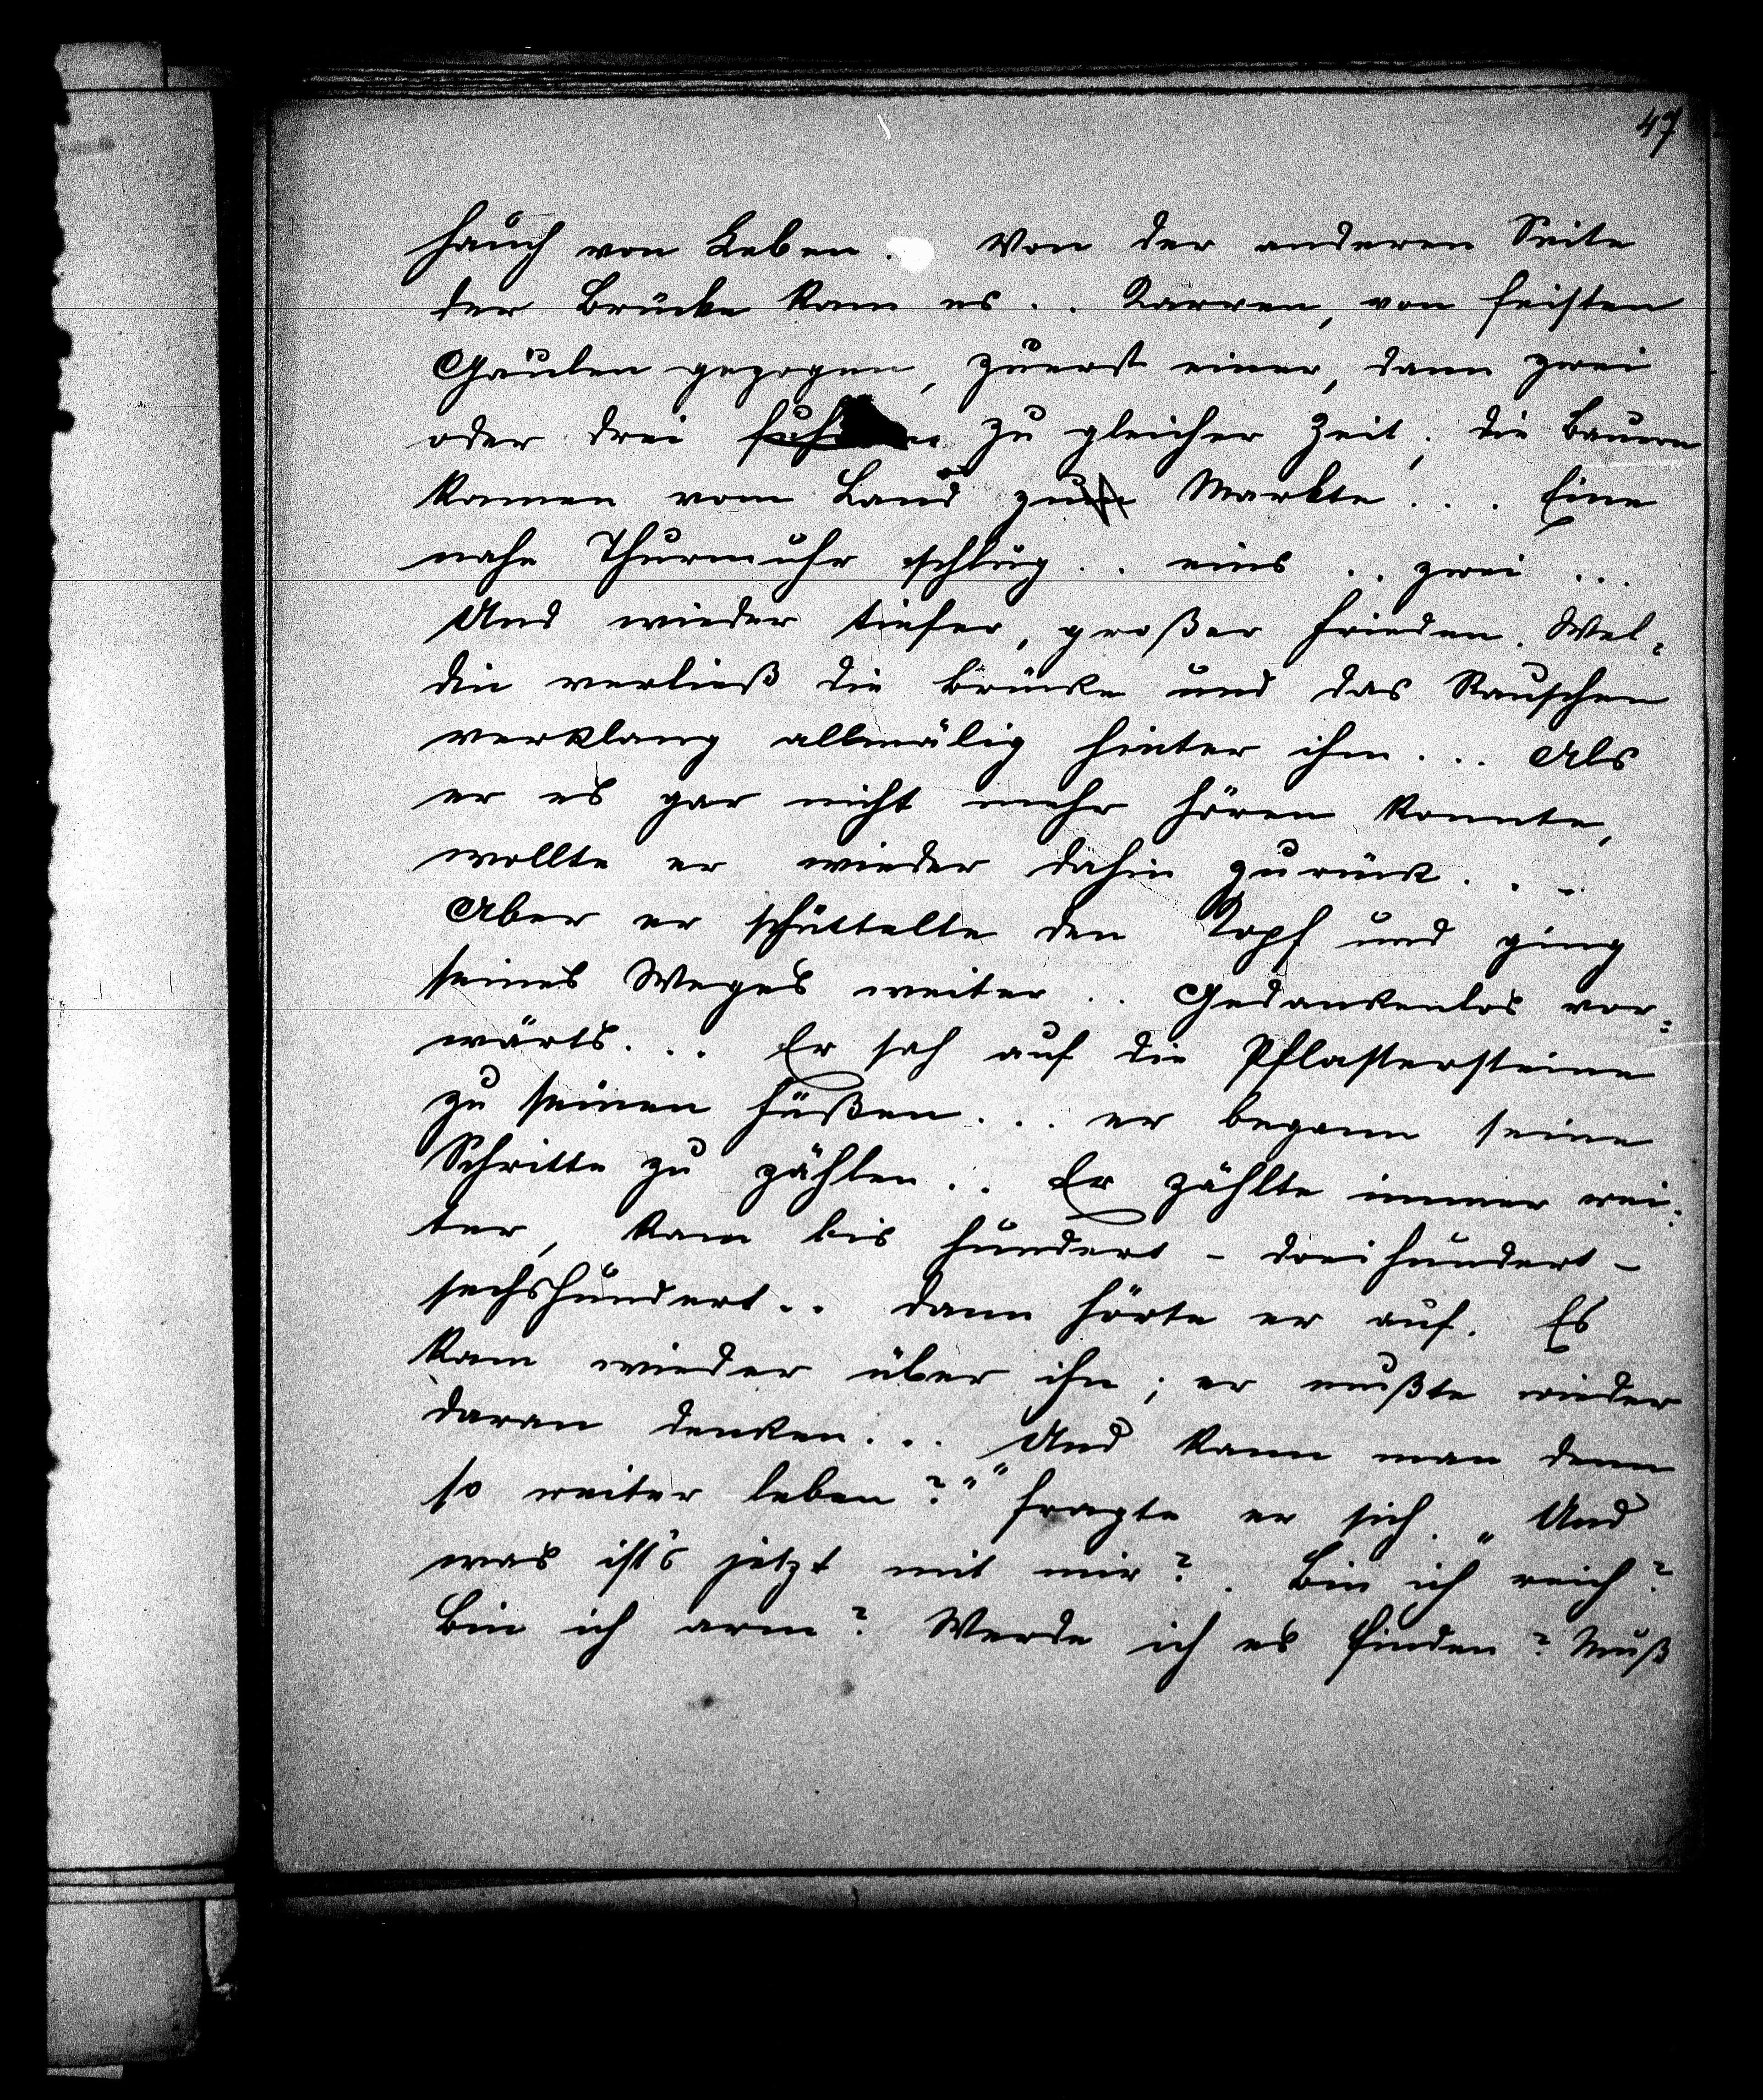 47
Hauch von Leben. Von der anderen Seite
der Brücke kam es . . Karren, von feisten
Gäulen gezogen, zuerst einer, dann zwei
oder drei zu gleicher Zeit; die Bauern
kamen vom Land zum Markte . . . Eine
nahe Thurmuhr schlug . . eins . . zwei . . .
Und wieder tiefer, großer Frieden. Wel-
din verließ die Brücke und das Rauschen
verklang allmälig hinter ihm . . . Als
er es gar nicht mehr hören konnte,
wollte er wieder dahin zurück . . .
Aber er schüttelte den Kopf und ging
seines Weges weiter . . Gedankenlos vor-
wärts. . . Er sah auf die Pflastersteine
zu seinen Füßen . . . er begann seine
Schritte zu zählen . . Er zählte immer wei-
ter, kam bis hundert – dreihundert –
sechshundert . . dann hörte er auf. Es
kam wieder über ihn; er mußte wieder
daran denken . . . „Und kann man denn
so weiter leben?" fragte er sich. „Und
was ist's jetzt mit mir? . Bin ich reich?
Bin ich arm? Werde ich es finden? Muß